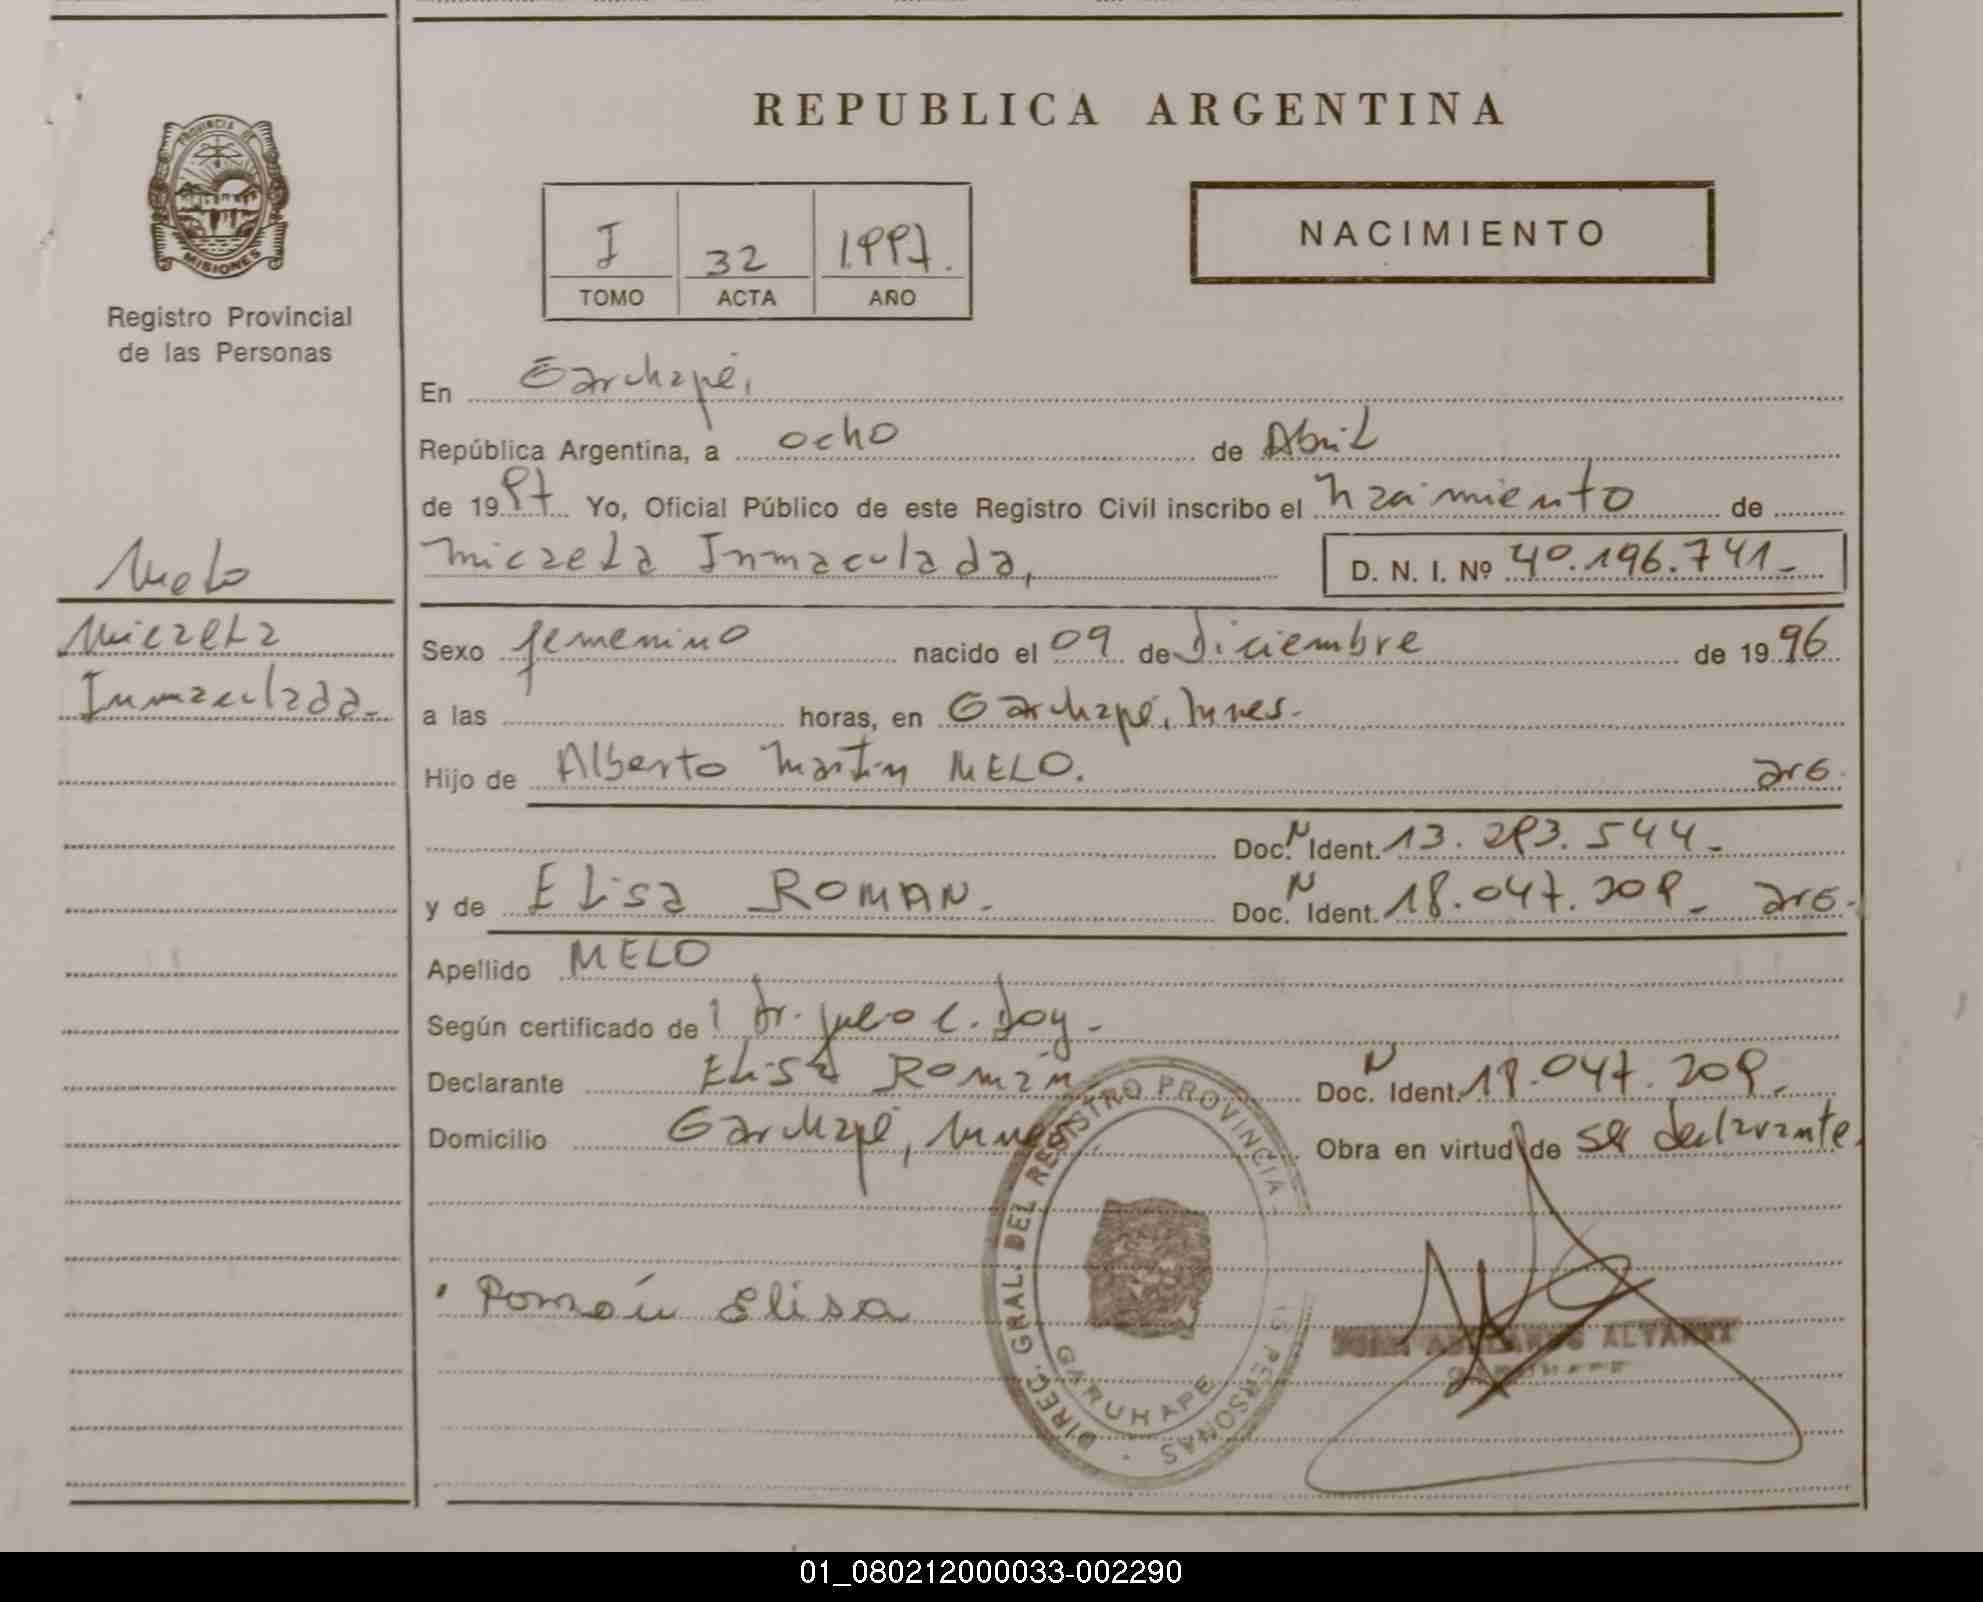 REPUBLICA ARGENTINA
PROVINCIA DE
MISIONES
Registro Provincial
de las Personas
NACIMIENTO
I 32 1.997.
TOMO ACTA AÑO
En Garuhapé,
República Argentina, a ocho de Abril
de 1997 Yo, Oficial Público de este Registro Civil inscribo el nacimiento de
Micaela Inmaculada, D. N. I. Nº 40.196.741-
Melo
Micaela
Inmaculada-
Sexo femenino nacido el 09 de Diciembre de 1996
a las horas, en Garuhapé,
Hijo de Alberto Martin MELO. arg.
Doc. N Ident. 13.293.544-
y de Elisa ROMAN- Doc. N Ident. 18.047.209- arg.
Apellido MELO
Según certificado de Dr. Julio C.
Declarante Elisa Román Doc. N Ident. 18.047.209-
Domicilio Garuhapé, Obra en virtud de ser declarante.
Román Elisa
DIREC. GRAL. DEL REGISTRO PROVINCIA PERSONAS
GARUHAPE
ALVAREZ
01_080212000033-002290